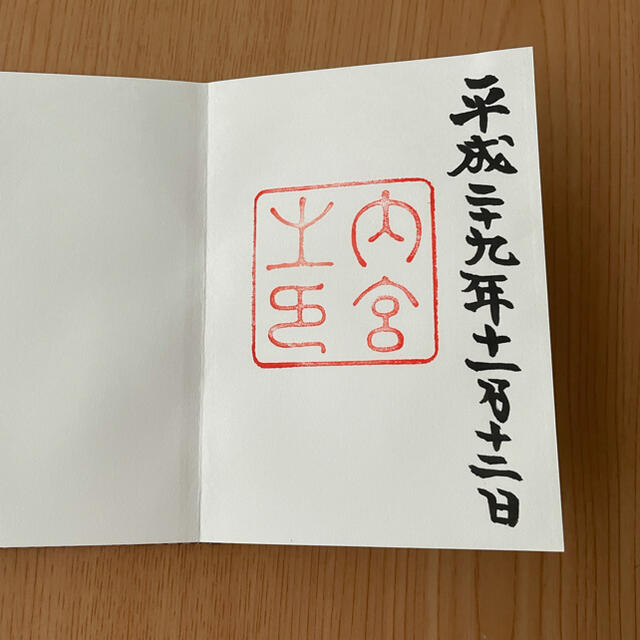 平成二十九年十一月十二日
内宮
之印